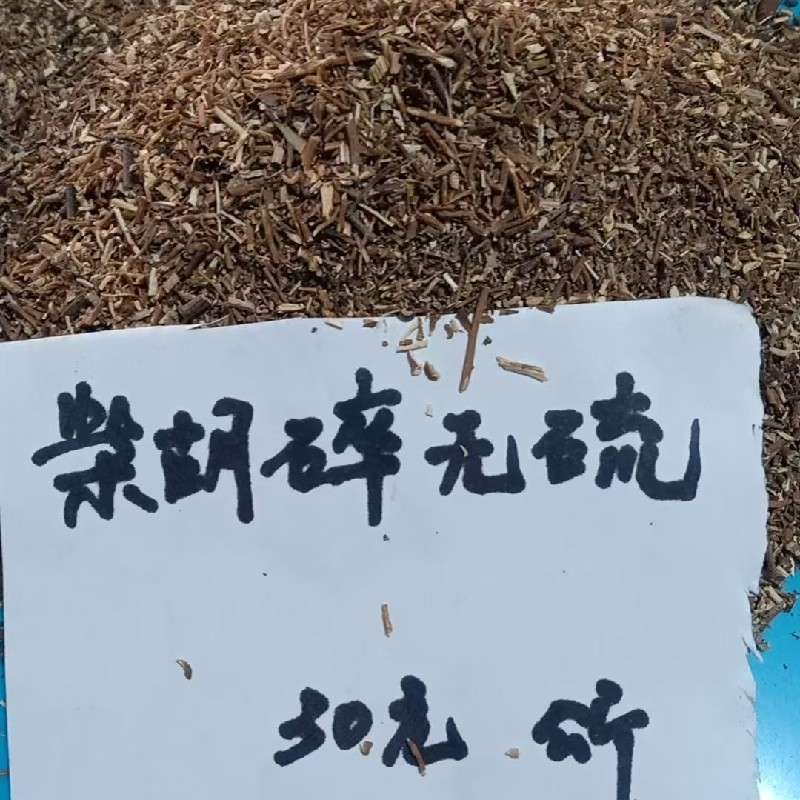 柴胡碎无硫
30元 斤